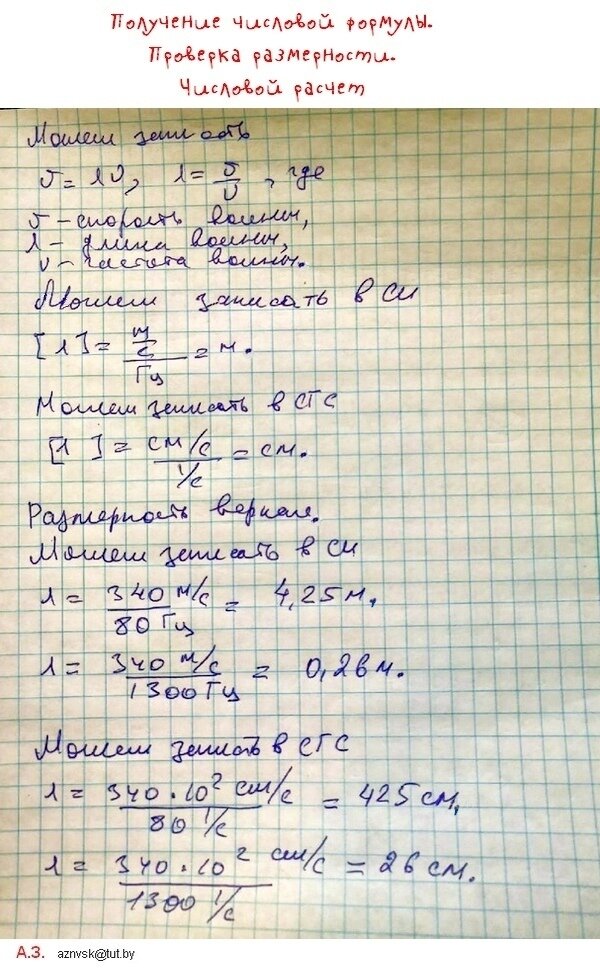 Получение числовой формулы.
Проверка размерности.
Числовой расчет
Можем записать
v = λν, λ = v/ν, где
v – скорость волны,
λ – длина волны,
ν – частота волны.
Можем записать в СИ
[λ] = (м/с)/Гц = м.
Можем записать в СГС
[λ] = (см/с)/(1/с) = см.
Размерность верная.
Можем записать в СИ
λ = 340 м/с / 80 Гц = 4,25 м.
λ = 340 м/с / 1300 Гц = 0,26 м.
Можем записать в СГС
λ = 340·10² см/с / 80 1/с = 425 см.
λ = 340·10² см/с / 1300 1/с = 26 см.
А.З. aznvsk@tut.by